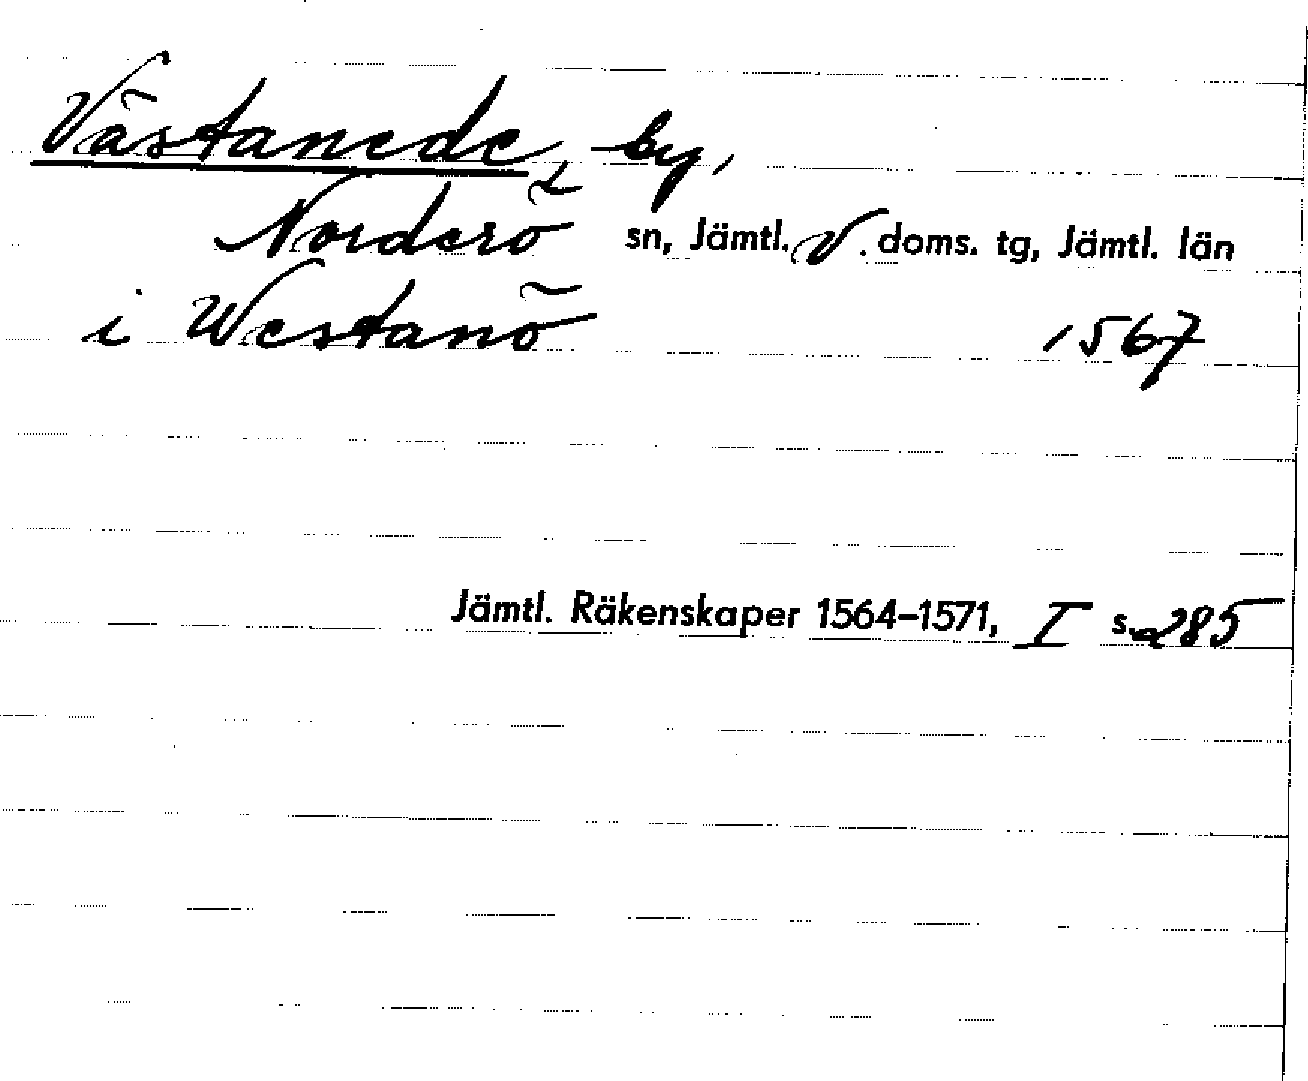 Västanede, by,
Norderö sn, Jämtl. V. doms. tg, Jämtl. län
i Westanö 1567
Jämtl. Räkenskaper 1564–1571, I s. 285